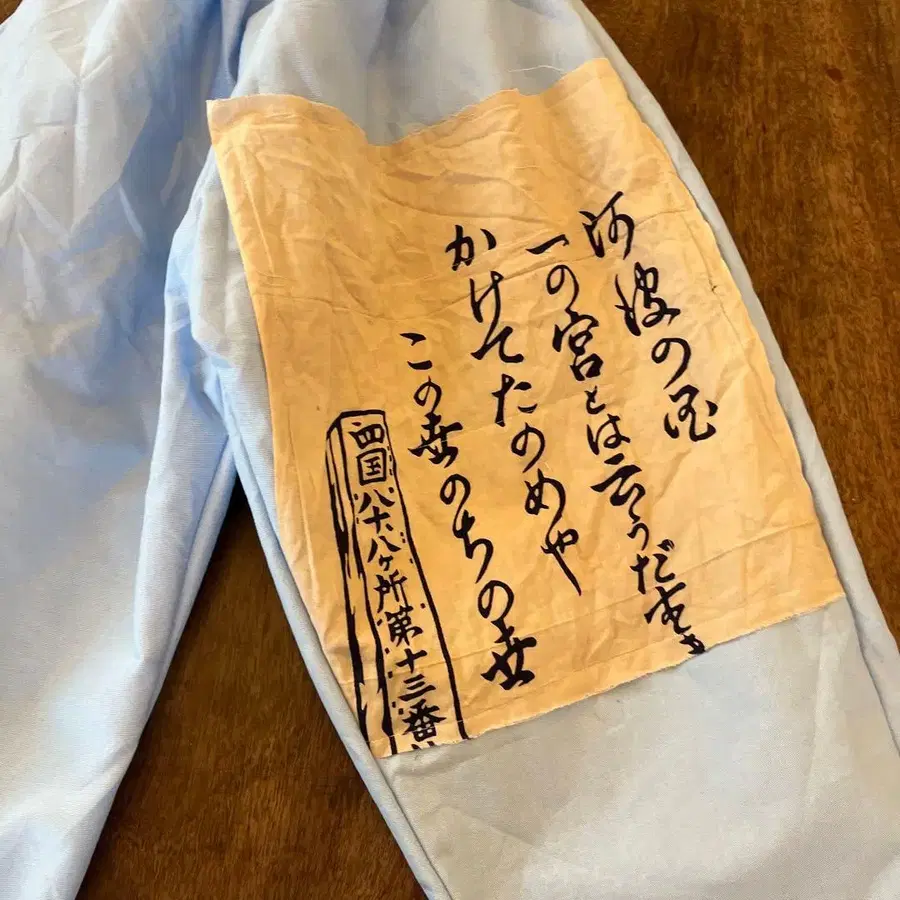 阿波の国
一の宮とは云うだすき
かけてたのめや
この世のちの世
四国八十八ヶ所第十三番